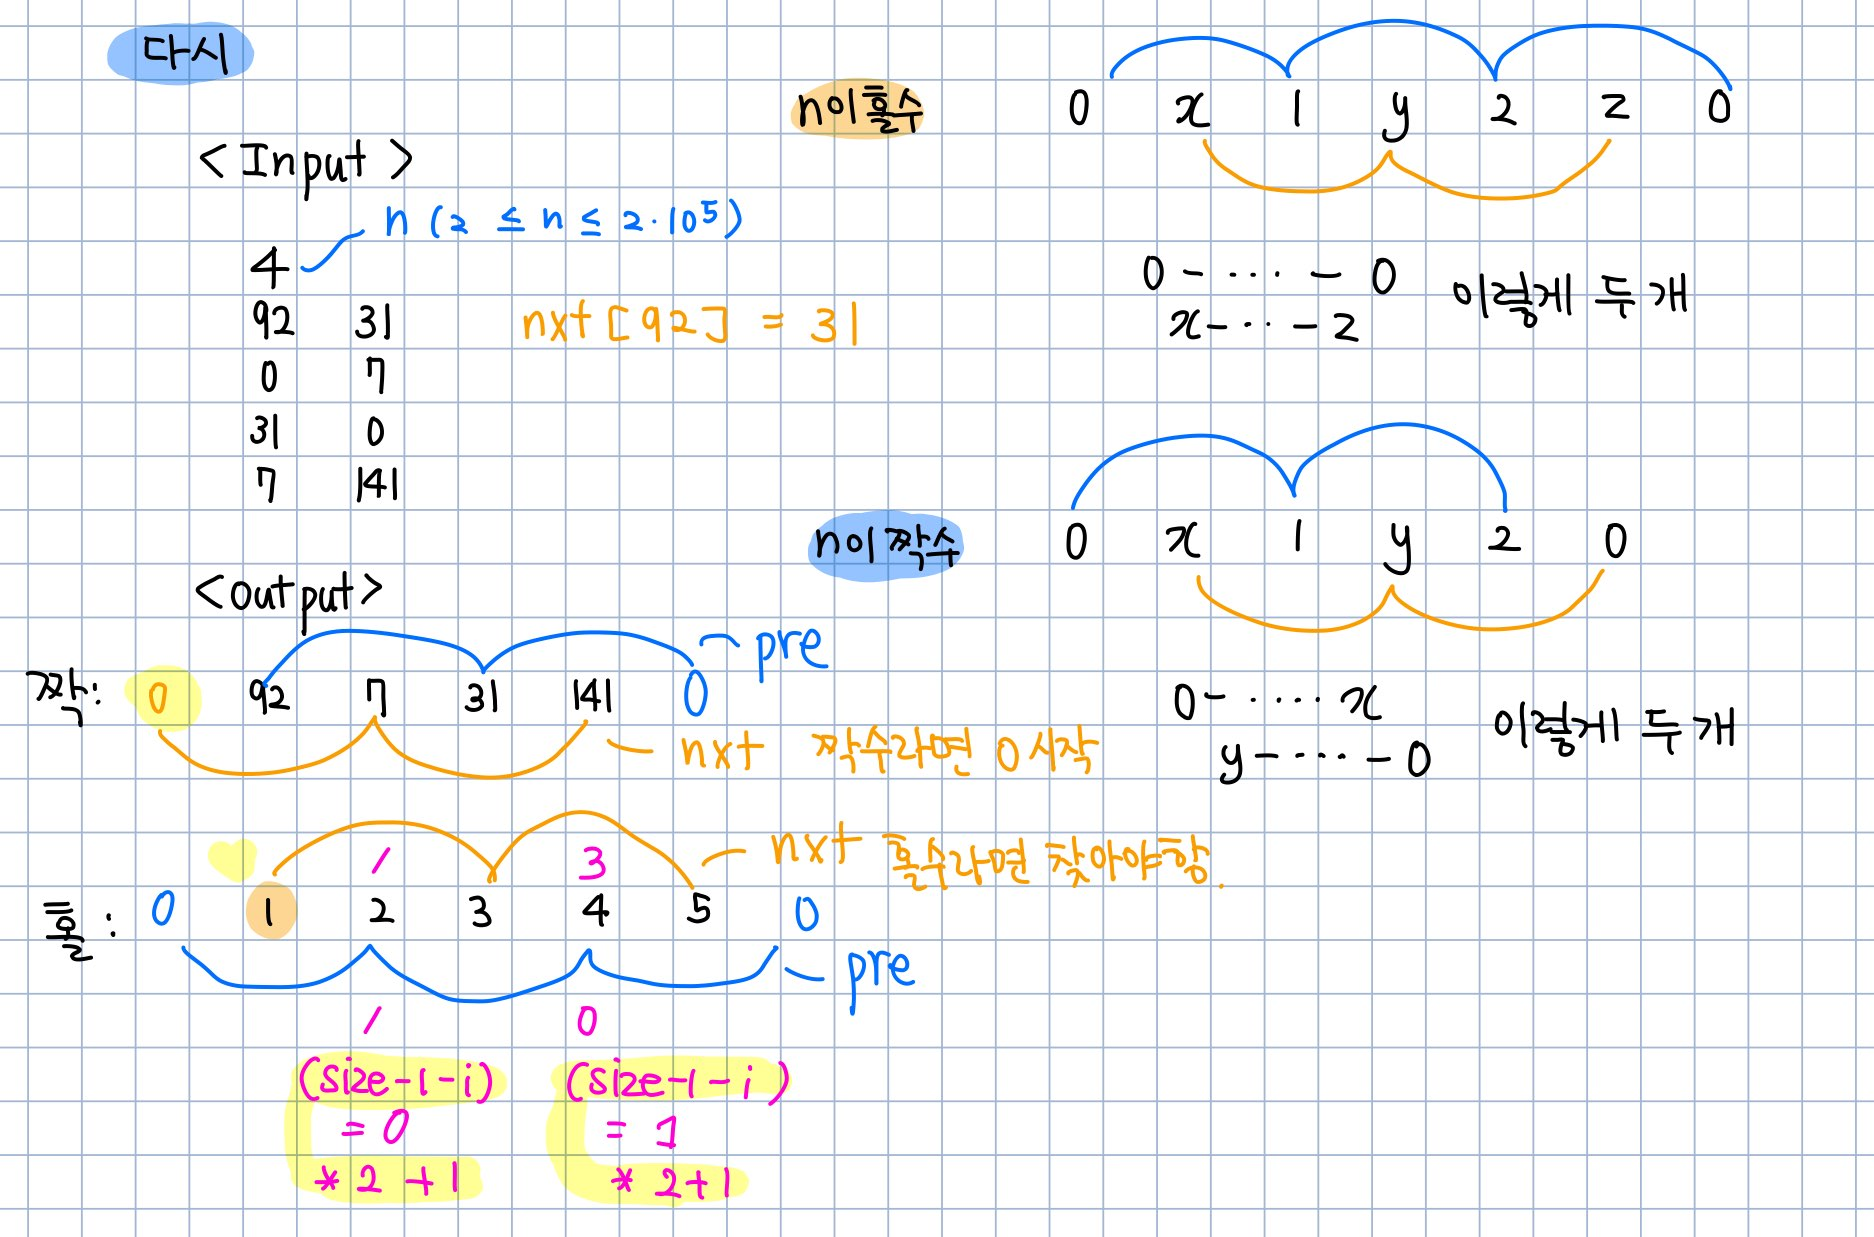 다시
<Input>
n (2 ≤ n ≤ 2·10⁵)
4
92 31 nxt [92] = 31
0 7
31 0
7 141
<output>
pre
짝: 0 92 7 31 141 0
nxt 짝수라면 0 시작
nxt 홀수라면 찾아야함.
1 3
홀: 0 1 2 3 4 5 0
pre
1 0
(size-1-i) (size-1-i)
= 0 = 1
*2+1 *2+1
n이 홀수 0 x 1 y 2 z 0
0-···-0 이렇게 두 개
x-···-z
n이 짝수 0 x 1 y 2 0
0-····x 이렇게 두 개
y-····-0